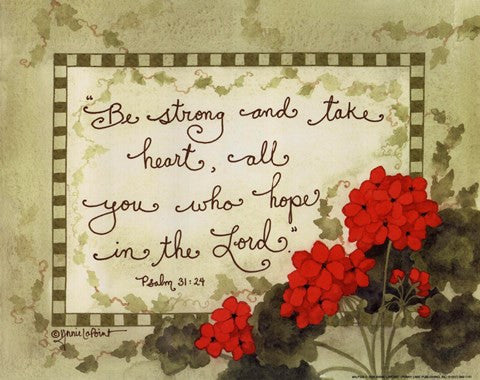 "Be strong and take
heart, all
you who hope
in the Lord."
Psalm 31:24
© Annie LaPoint